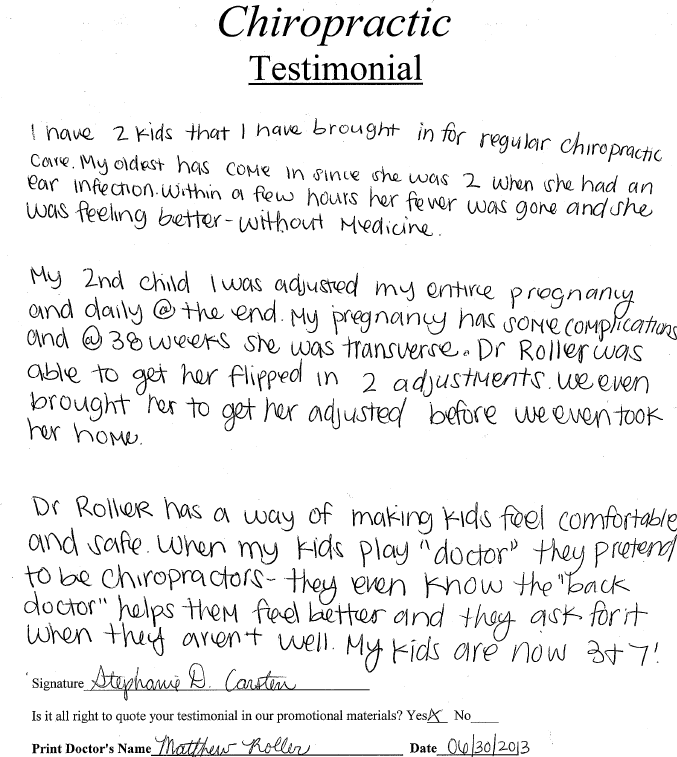 Chiropractic
Testimonial
I have 2 kids that I have brought in for regular chiropractic
care. My oldest has come in since she was 2 when she had an
ear infection. Within a few hours her fever was gone and she
was feeling better - without medicine.
My 2nd child I was adjusted my entire pregnancy
and daily @ the end. My pregnancy has some complications
and @ 38 weeks she was transverse. Dr Roller was
able to get her flipped in 2 adjustments. We even
brought her to get her adjusted before we even took
her home.
Dr Roller has a way of making kids feel comfortable
and safe. When my kids play "doctor" they pretend
to be chiropractors - they even know the "back
doctor" helps them feel better and they ask for it
when they aren't well. My kids are now 3 + 7!
Signature Stephanie D. Carsten
Is it all right to quote your testimonial in our promotional materials? Yes X No
Print Doctor's Name Matthew Roller Date 06/30/2013